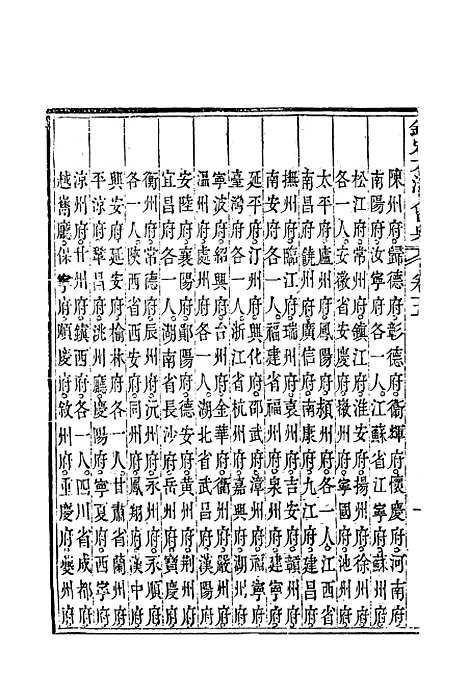 陳州府歸德府彰德府衞輝府懷慶府河南府
南陽府汝寧府各一人江蘇省江寧府蘇州府
松江府常州府鎮江府淮安府揚州府徐州府
各一人安徽省安慶府徽州府寧國府池州府
太平府廬州府鳳陽府潁州府各一人江西省
南昌府饒州府廣信府南康府九江府建昌府
撫州府臨江府瑞州府袁州府吉安府贛州府
南安府各一人福建省福州府泉州府建寧府
延平府汀州府興化府邵武府漳州府福寧府
臺灣府各一人浙江省杭州府嘉興府湖州府
寧波府紹興府台州府金華府衢州府嚴州府
溫州府處州府各一人湖北省武昌府漢陽府
安陸府襄陽府鄖陽府德安府黃州府荊州府
宜昌府各一人湖南省長沙府岳州府寶慶府
衡州府常德府辰州府沅州府永州府永順府
各一人陝西省西安府同州府鳳翔府漢中府
興安府延安府榆林府各一人甘肅省蘭州府
平涼府鞏昌府洮州廳慶陽府寧夏府西寧府
涼州府甘州府鎮西府各一人四川省成都府
越巂廳保寧府順慶府敘州府重慶府夔州府